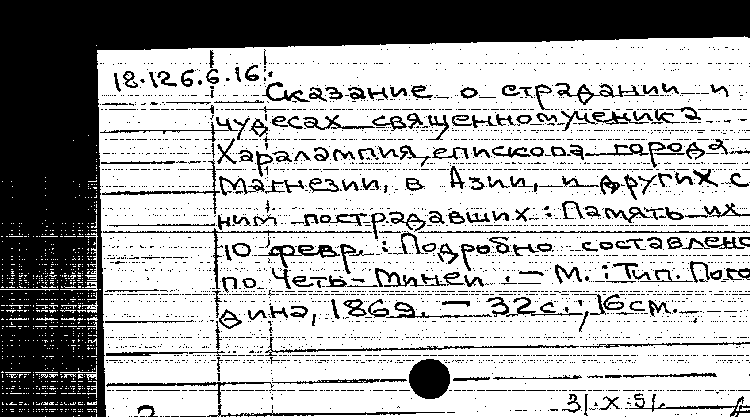 18.126.6.16.
Сказание о страдании и
чудесах священномученика
Харалампия, епископа города
Магнезии, в Азии, и других с
ним пострадавших : Память их
10 февр. : Подробно составлено
по Четь-Минеи . — М. : Тип. Пого
дина, 1869. — 32с. ; 16см.
31.X.51.